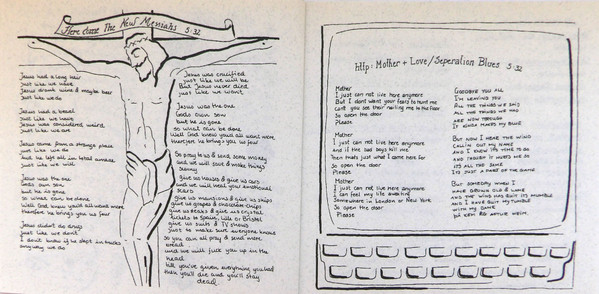 Here come The New Messiahs 5:32
Jesus had a long hair
just like we have
Jesus drank wine & maybe beer
just like we do
Jesus had a beard
just like we have
Jesus was considered weird
just like we are
Jesus came from a strange place
just like we do
but he left all in total amaze
just like we will
Jesus was the one
Gods own son
but he is gone
so what can be done
Well God knew you'd all want more
therefore he brings you us four
Jesus didn't do drugs
just like we don't
I don't know if he slept in trucks
anyway we do
Jesus was crucified
just like we will be
But Jesus never died
just like we won't
Jesus was the one
Gods own son
but he is gone
so what can be done
Well God knew you'd all want more
therefore he brings you us four
So pray to us & send some money
and we will save & make things
sunny
give us houses & give us cars
and we will heal your emotional
scars
give us mansions & give us ships
give us grapes & chocolate chips
give us & give us crystal
tickets to Spain, Lille or Bristol
give us suits & TV shows
just to make sure everyone knows
So you can all pray & send more
bread
and we will fuck you up in the
head
till you've given everything you had
then you'll die and you'll stay
dead
http: Mother + Love/Seperation Blues 5:32
Mother
I just can not live here anymore
But I dont want your fears to haunt me
cant you see their nailing me to the floor
So open the door
Please
Mother
I just can not live here anymore
and if the bad boys kill me
Then thats just what I came here for
So open the door
Please
Mother
I just can not live here anymore
I can feel my life awaking
Somewhere in London or New York
So open the door
Please
Goodbye you all
I'm leaving you
All the things we said
All the things we had
are now through
It kinda makes my blue
But now I hear the wind
callin out my name
and I know its time to go
and though it hurts me so
its all the same
its just a part of the game
But someday when I
have grown old & lame
and the wind has quit its rumble
and I have quit my tumble
with my game